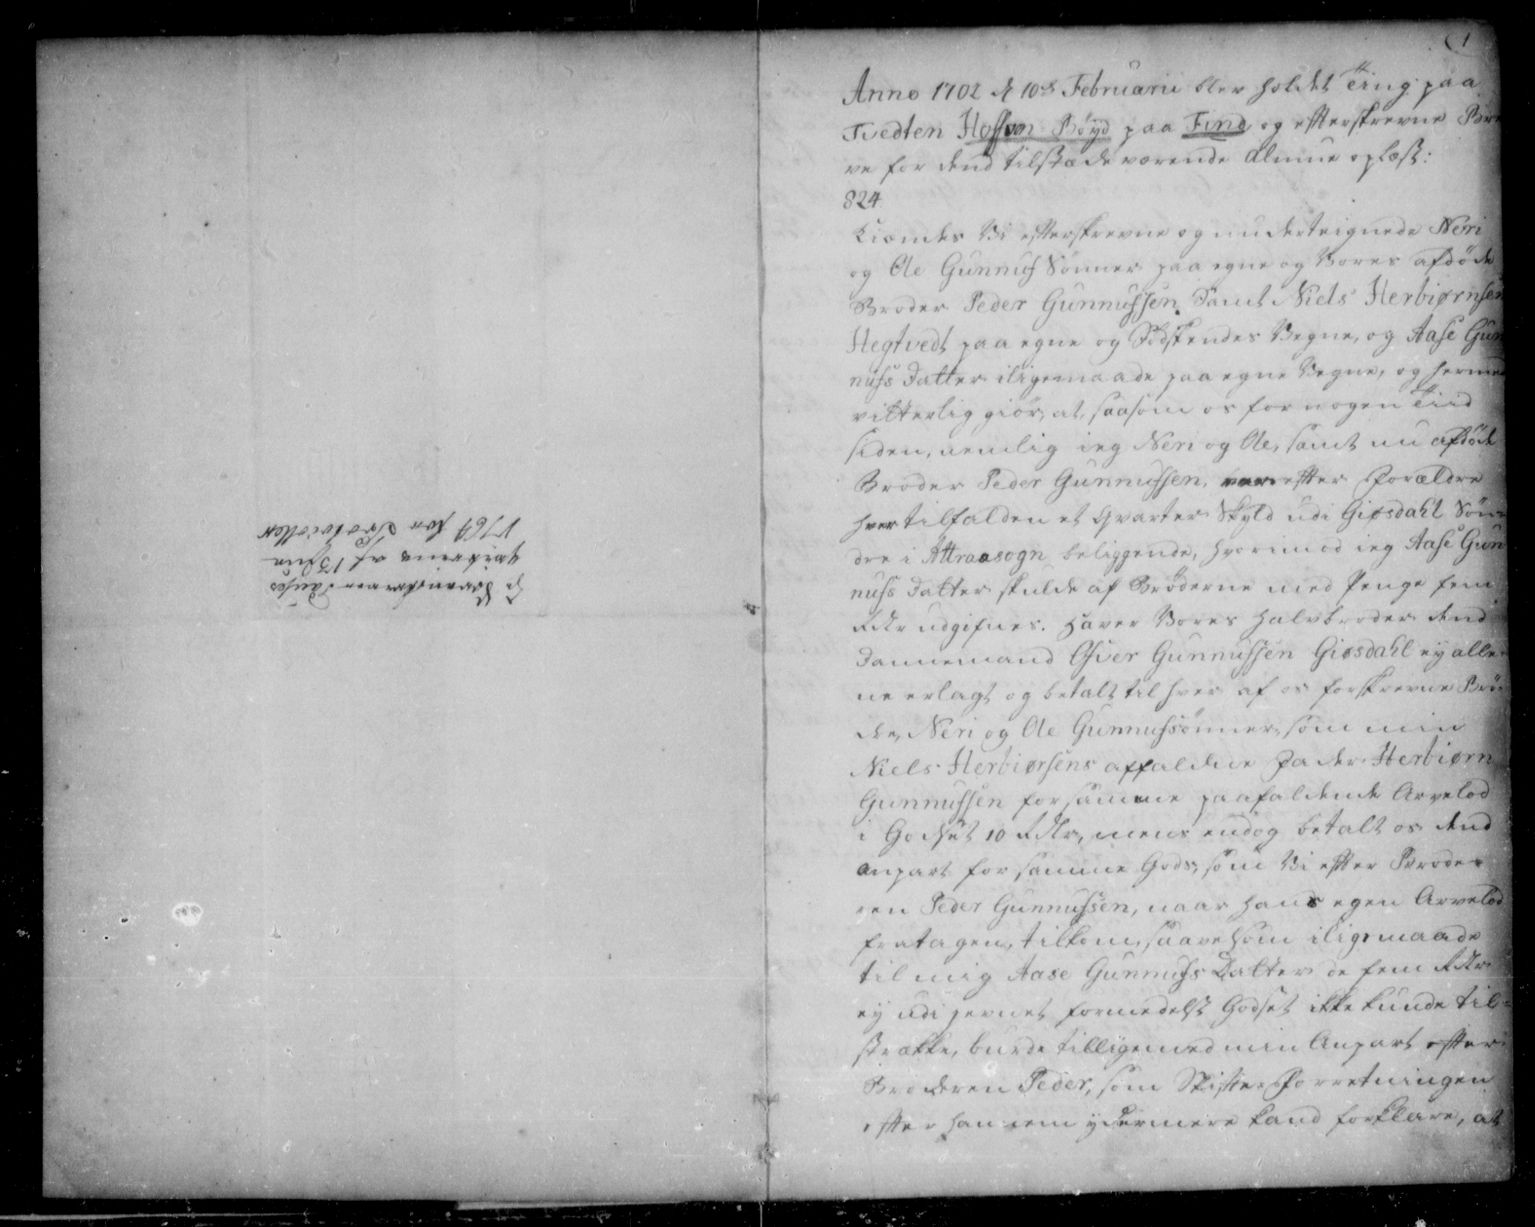 1
Anno 1702 d 10de Februarii blev holdet Ting paa
Tvedten Hofsson Böyd paa Find og efterskrevne Bre
ve for dend tilstæde værende Almue oplæst:
824
Kiendes Vi efterskrevne og underteignede Neri
og Ole Gunnufs Sönner paa egne og Vores afdöde
Broder Peder Gunnufssen, Samt Niels Herbiørnsen
Hegtvedt paa egne og Södskendes Vegne, og Aase Gun
nufs Datter iligemaade paa egne Vegne, og hermed
vitterlig giör, at saasom os for nogen Tiid
siden, nemlig ieg Neri og Ole, samt nu afdöde
Broder Peder Gunnufssen, var efter Forældre
hver tilfalden et Qvarter Skyld udi Giøsdahl Sön-
dre i Attraasogn beliggende, hvorimod ieg Aase Gun
nufs Datter skulde af Bröderne med Penge fem
Rdlr udgifues. Haver Vores halvbroder dend
Dannemand Ofver Gunnufssen Giøsdahl ey alle-
ne erlagt og betalt til hver af os forskrevne Brö-
dre, Neri og Ole Gunnufssönner, som min
Niels Herbiørsens affaldene Fader Herbiørn
Gunnufssen for samme paafaldende Arvelod
i Godset 10 Rdlr, mens endog betalt os dend
anpart for samme Gods, som Vi efter Brode-
ren Peder Gunnufssen, naar hans egen Arvelod
fratagen, tilkom, saavelsom iligemaade
til mig Aase Gunnufs Datter de fem Rdlr
ey udi jevnet formedelst Godset ikke kunde til-
strække, burde tilligemed min Anpart efter
Broderen Peder, som Skifte Forretningen
efter hannem ydermere kand forklare, at